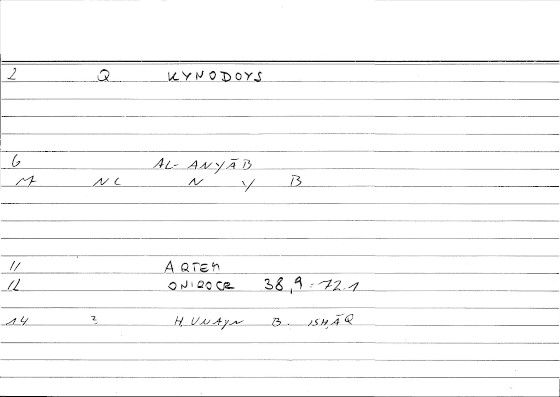 2 Q KYNODOYS
6 AL-ANYĀB
M NL N Y B
11 ARTEM
12 ONIROCR 38,9 = 72.1
14 2 ḤUNAYN B. ISḤĀQ